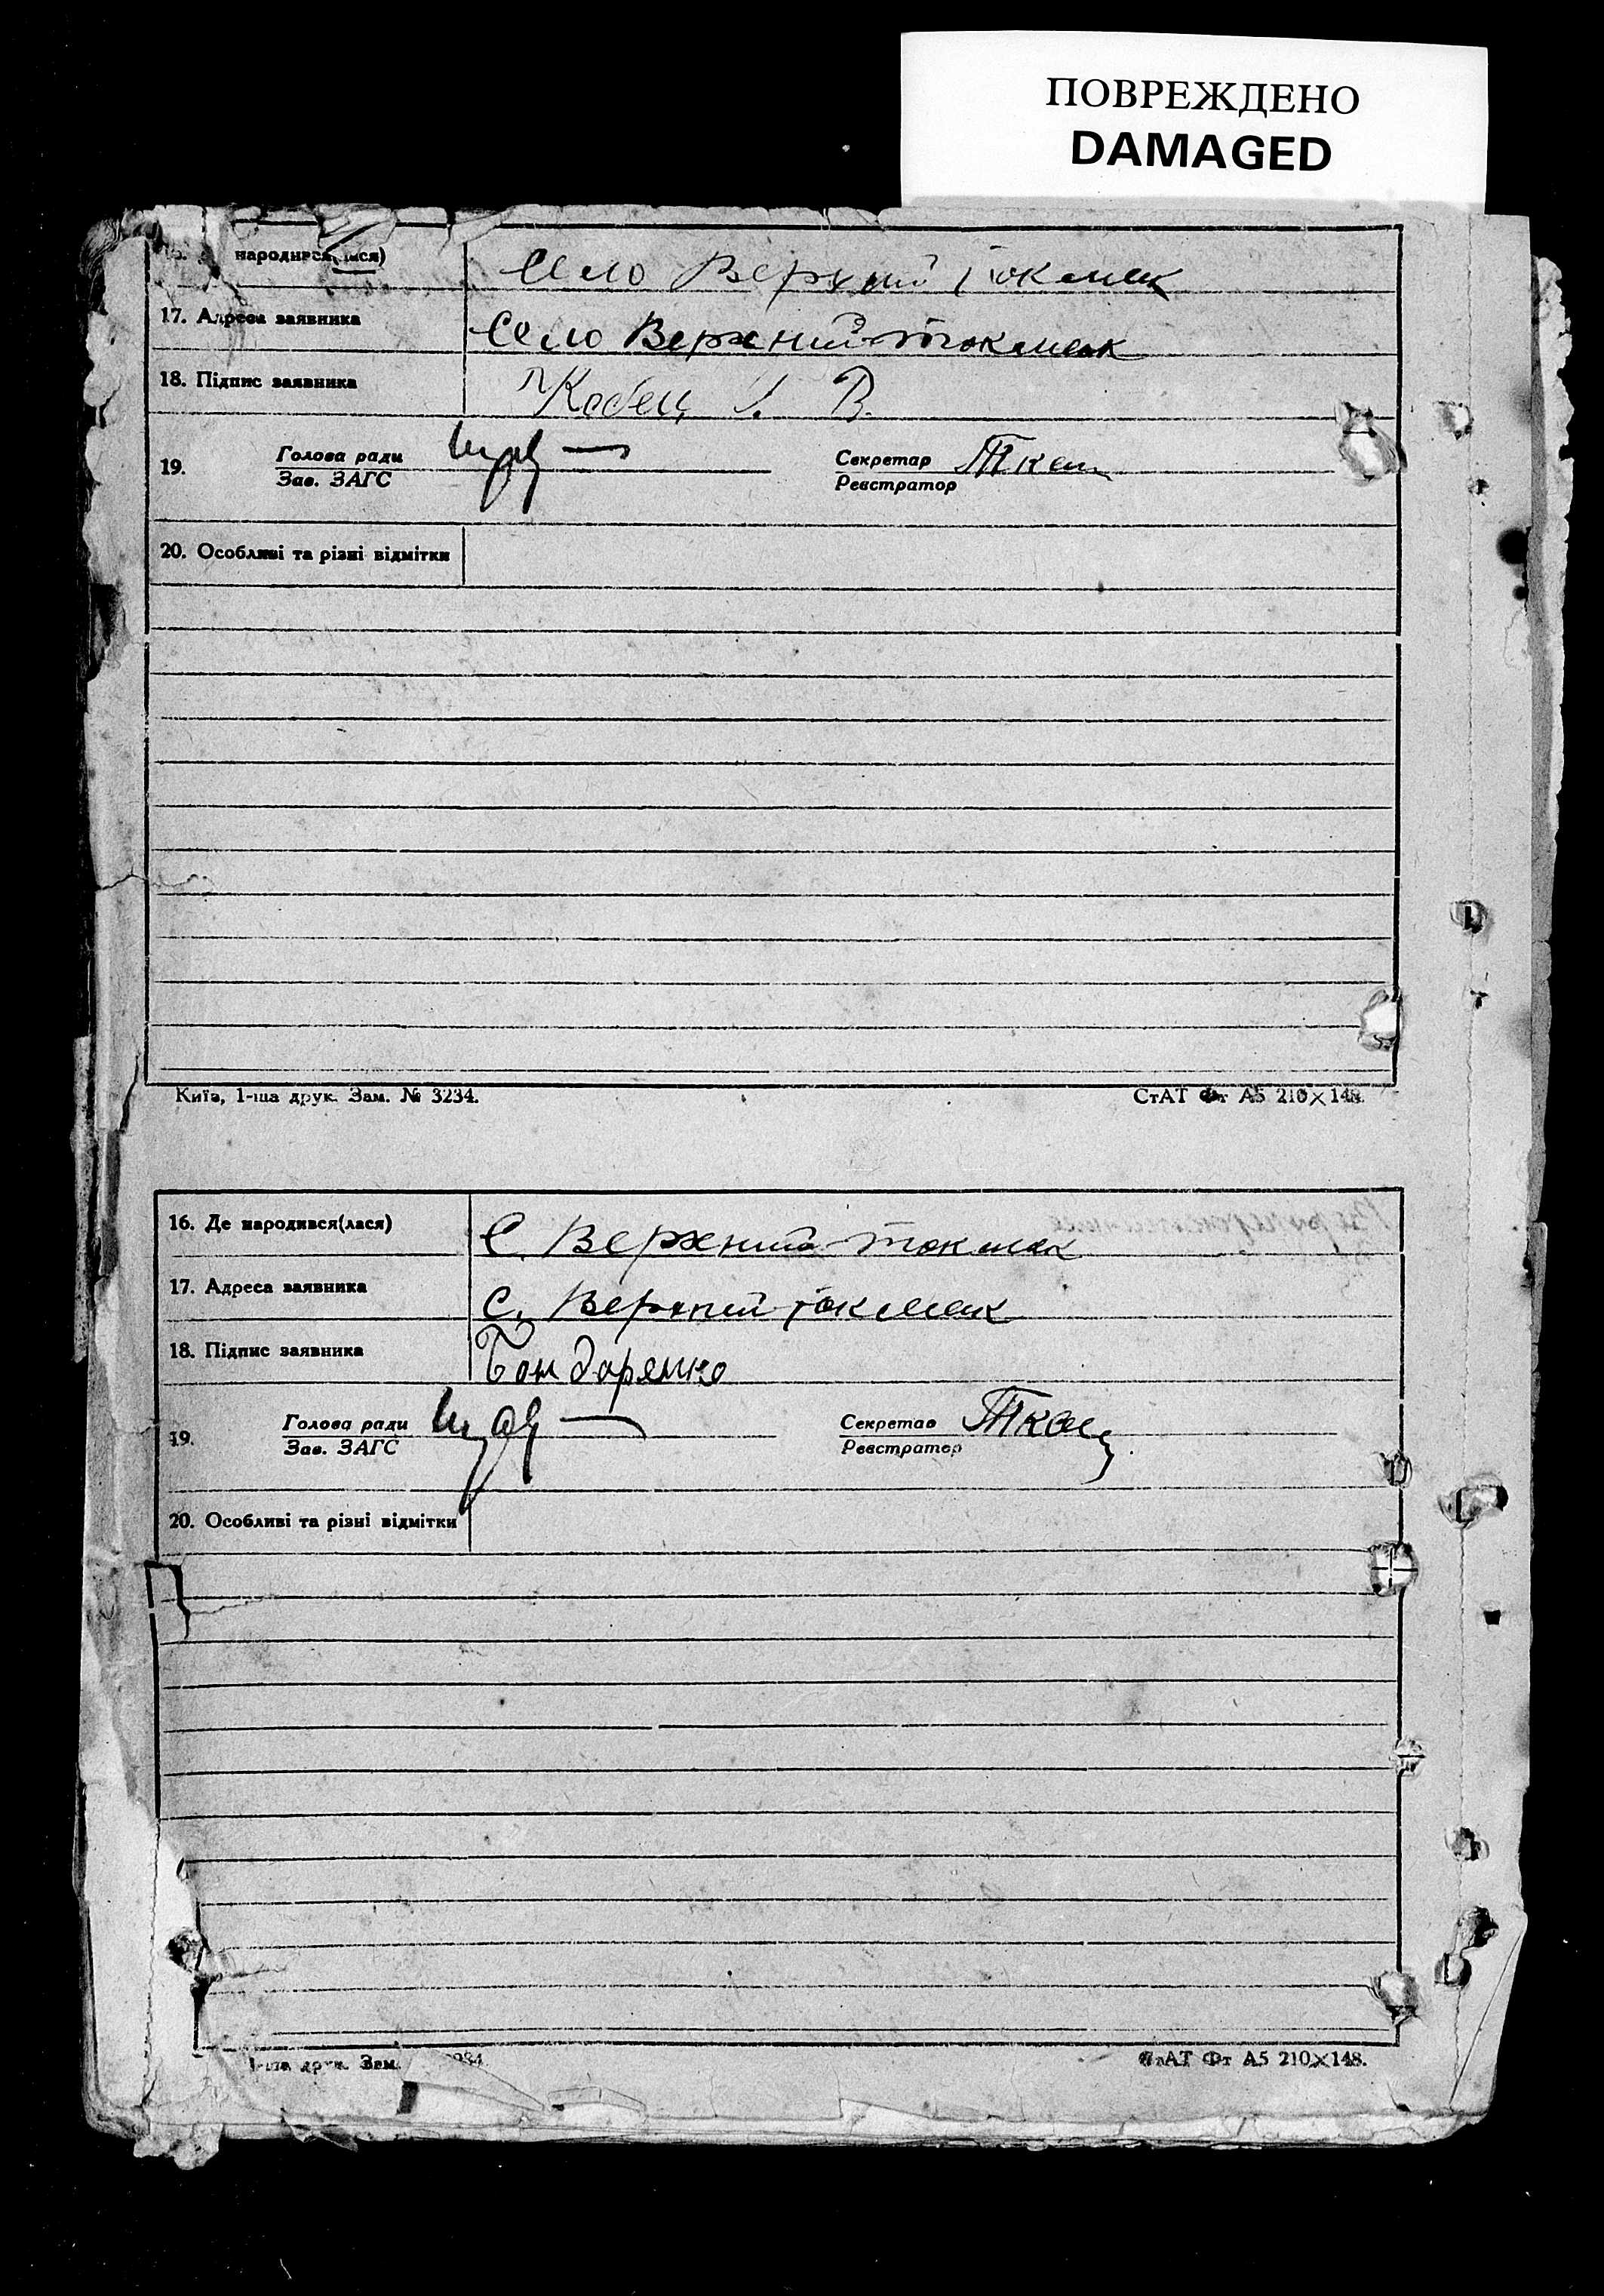 ПОВРЕЖДЕНО
DAMAGED
народився(лася) Село Верхний Токмак
17. Адреса заявника Село Верхний Токмак
18. Підпис заявника Кобец В.
19. Голова ради Секретар Ткач
Зав. ЗАГС Реєстратор
20. Особливі та різні відмітки
Київ, 1-ша друк. Зам. № 3234. СтАТ Фт А5 210×148.
16. Де народився(лася) С. Верхний Токмак
17. Адреса заявника С. Верхний Токмак
18. Підпис заявника Бондаренко
19. Голова ради Секретар Ткач
Зав. ЗАГС Реєстратор
20. Особливі та різні відмітки
друк. Зам. СтАТ Фт А5 210×148.